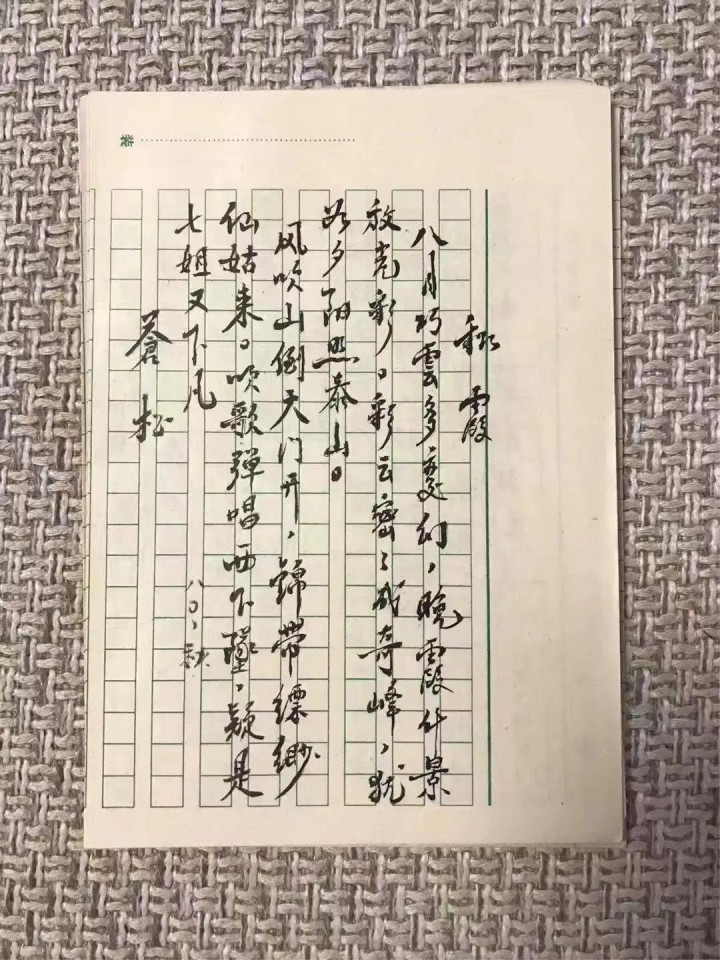 秋霞
八月巧雲多变幻，晚霞什景
放光彩。彩云密々成奇峰，犹
如夕阳照泰山。
风吹山倒天门开，錦带缥缈
仙姑来。吹歌弹唱西下墜，疑是
七姐又下凡
八〇、秋
蒼松
装